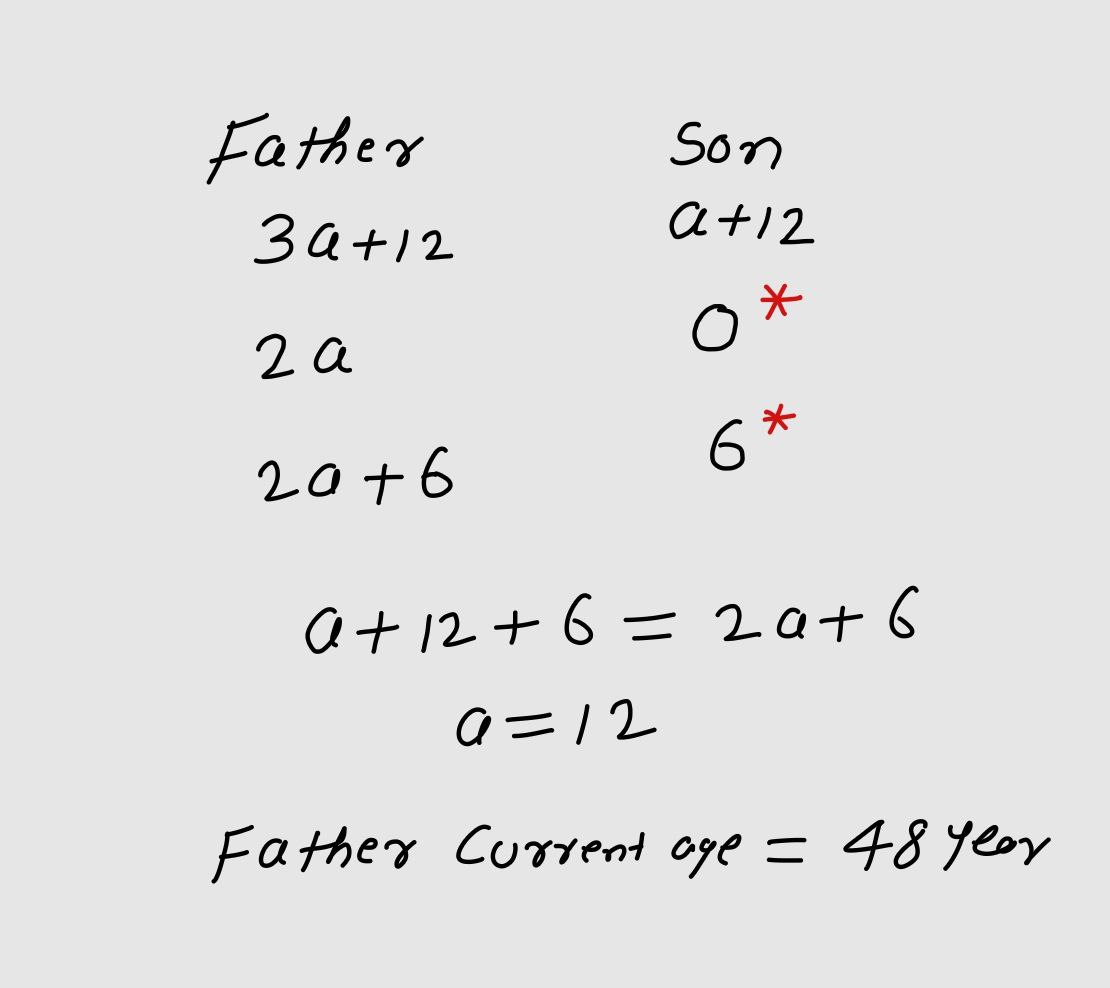 Father Son
3a+12 a+12
2a 0*
2a+6 6*
a+12+6=2a+6
a=12
Father Current age = 48 year